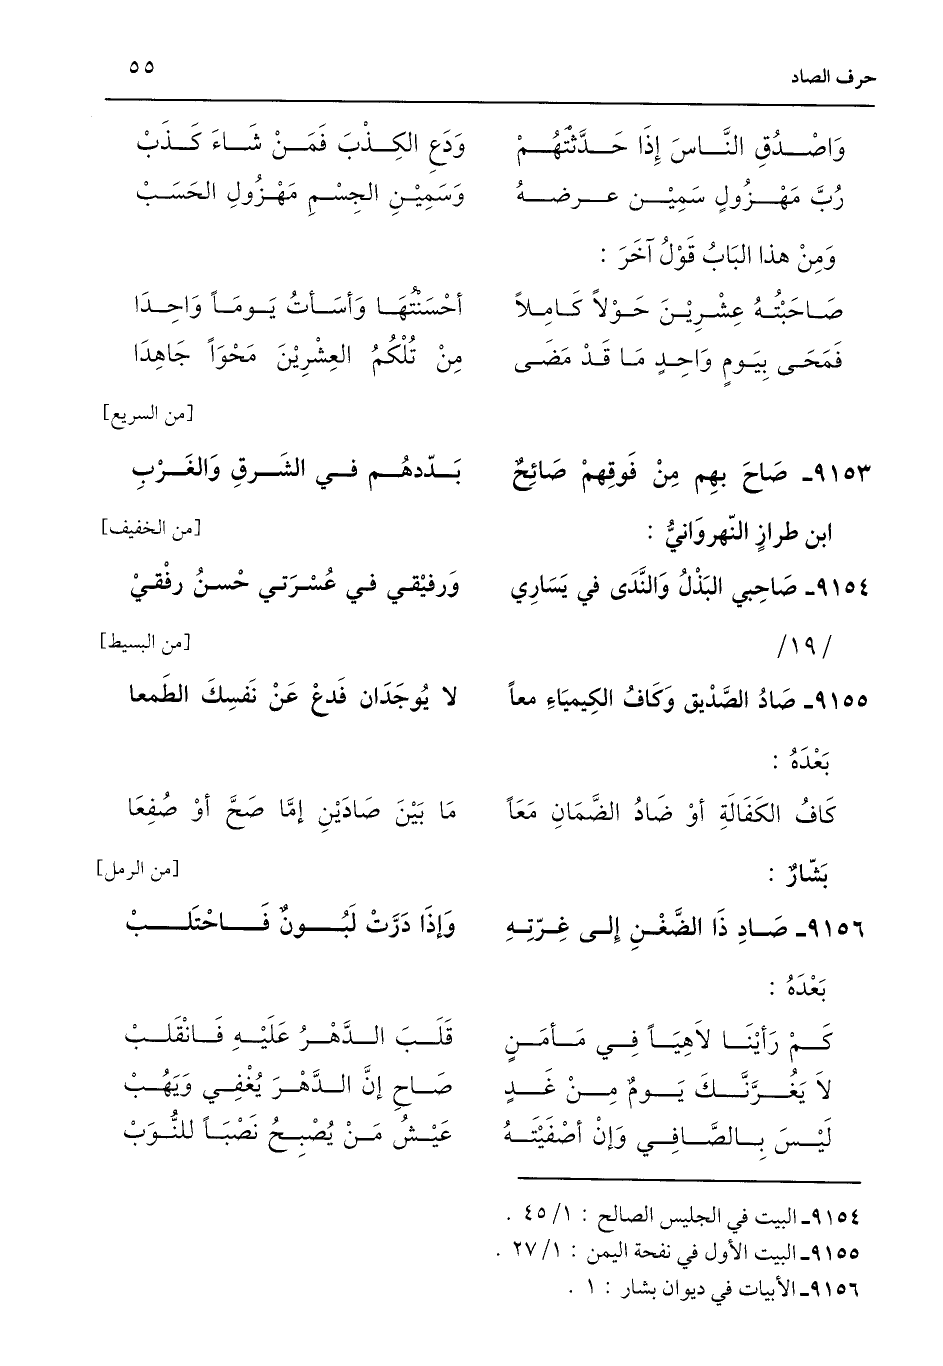 حرف الصاد ٥٥
وَاصْدُقِ النَّاسَ إِذَا حَدَّثْتُهُمْ وَدَعِ الكِذْبَ فَمَنْ شَاءَ كَذَبْ
رُبَّ مَهْزُولٍ سَمِيْنٍ عرضهُ وَسَمِيْنِ الجِسْمِ مَهْزُولِ الحَسَبْ
وَمِنْ هذا البَابُ قَوْلُ آخَرَ :
صَاحَبْتُهُ عِشْرِيْنَ حَوْلاً كَامِلاً أحْسَنْتُهَا وَأسَأتُ يَومَاً وَاحِدَا
فَمَحَى بِيَومٍ وَاحِدٍ مَا قَدْ مَضَى مِنْ تُلْكُمُ العِشْرِيْنَ مَحْوَاً جَاهِدَا
[من السريع]
٩١٥٣ـ صَاحَ بِهِم مِنْ فَوقِهِمْ صَائِحٌ بَدّدهُم فِي الشَرقِ وَالغَرْبِ
ابن طرازٍ النّهروَانيُّ : [من الخفيف]
٩١٥٤ـ صَاحِبي البَذْلُ وَالنَّدَى في يَسَارِي وَرفيْقي في عُسْرَتي حْسنُ رفْقيْ
/١٩/ [من البسيط]
٩١٥٥ـ صَادُ الصَّدْيق وَكَافُ الكِيمَيَاءِ معاً لا يُوجَدَان فَدعْ عَنْ نَفسِكَ الطَمعا
بَعْدَهُ :
كَافُ الكَفَالَةِ أوْ ضَادُ الضَّمَانِ مَعَاً مَا بَيْنَ صَادَيْنِ إمَّا صَحَّ أوْ صُفِعَا
بَشّارٌ : [من الرمل]
٩١٥٦ـ صَادِ ذَا الضَّغْنِ إلى غِرّتِهِ وَإذَا دَرَّتْ لَبُونٌ فَاحْتَلبْ
بَعْدَهُ :
كَمْ رَأيْنَا لاَهِيَاً فِي مَأمَنٍ قَلَبَ الدَّهْرُ عَلَيْهِ فَانْقَلَبْ
لاَ يَغُرَّنَّكَ يَومٌ مِنْ غَدٍ صَاحِ إنَّ الدَّهْرَ يُغْفِي وَيَهُبْ
لَيْسَ بِالصَّافِي وَإنْ أصْفَيْتَهُ عَيْشُ مَنْ يُصْبِحُ نَصْبَاً للنُّوَبْ
٩١٥٤ـ البيت في الجليس الصالح : ١/ ٤٥ .
٩١٥٥ـ البيت الأول في نفحة اليمن : ١/ ٢٧ .
٩١٥٦ـ الأبيات في ديوان بشار : ١ .